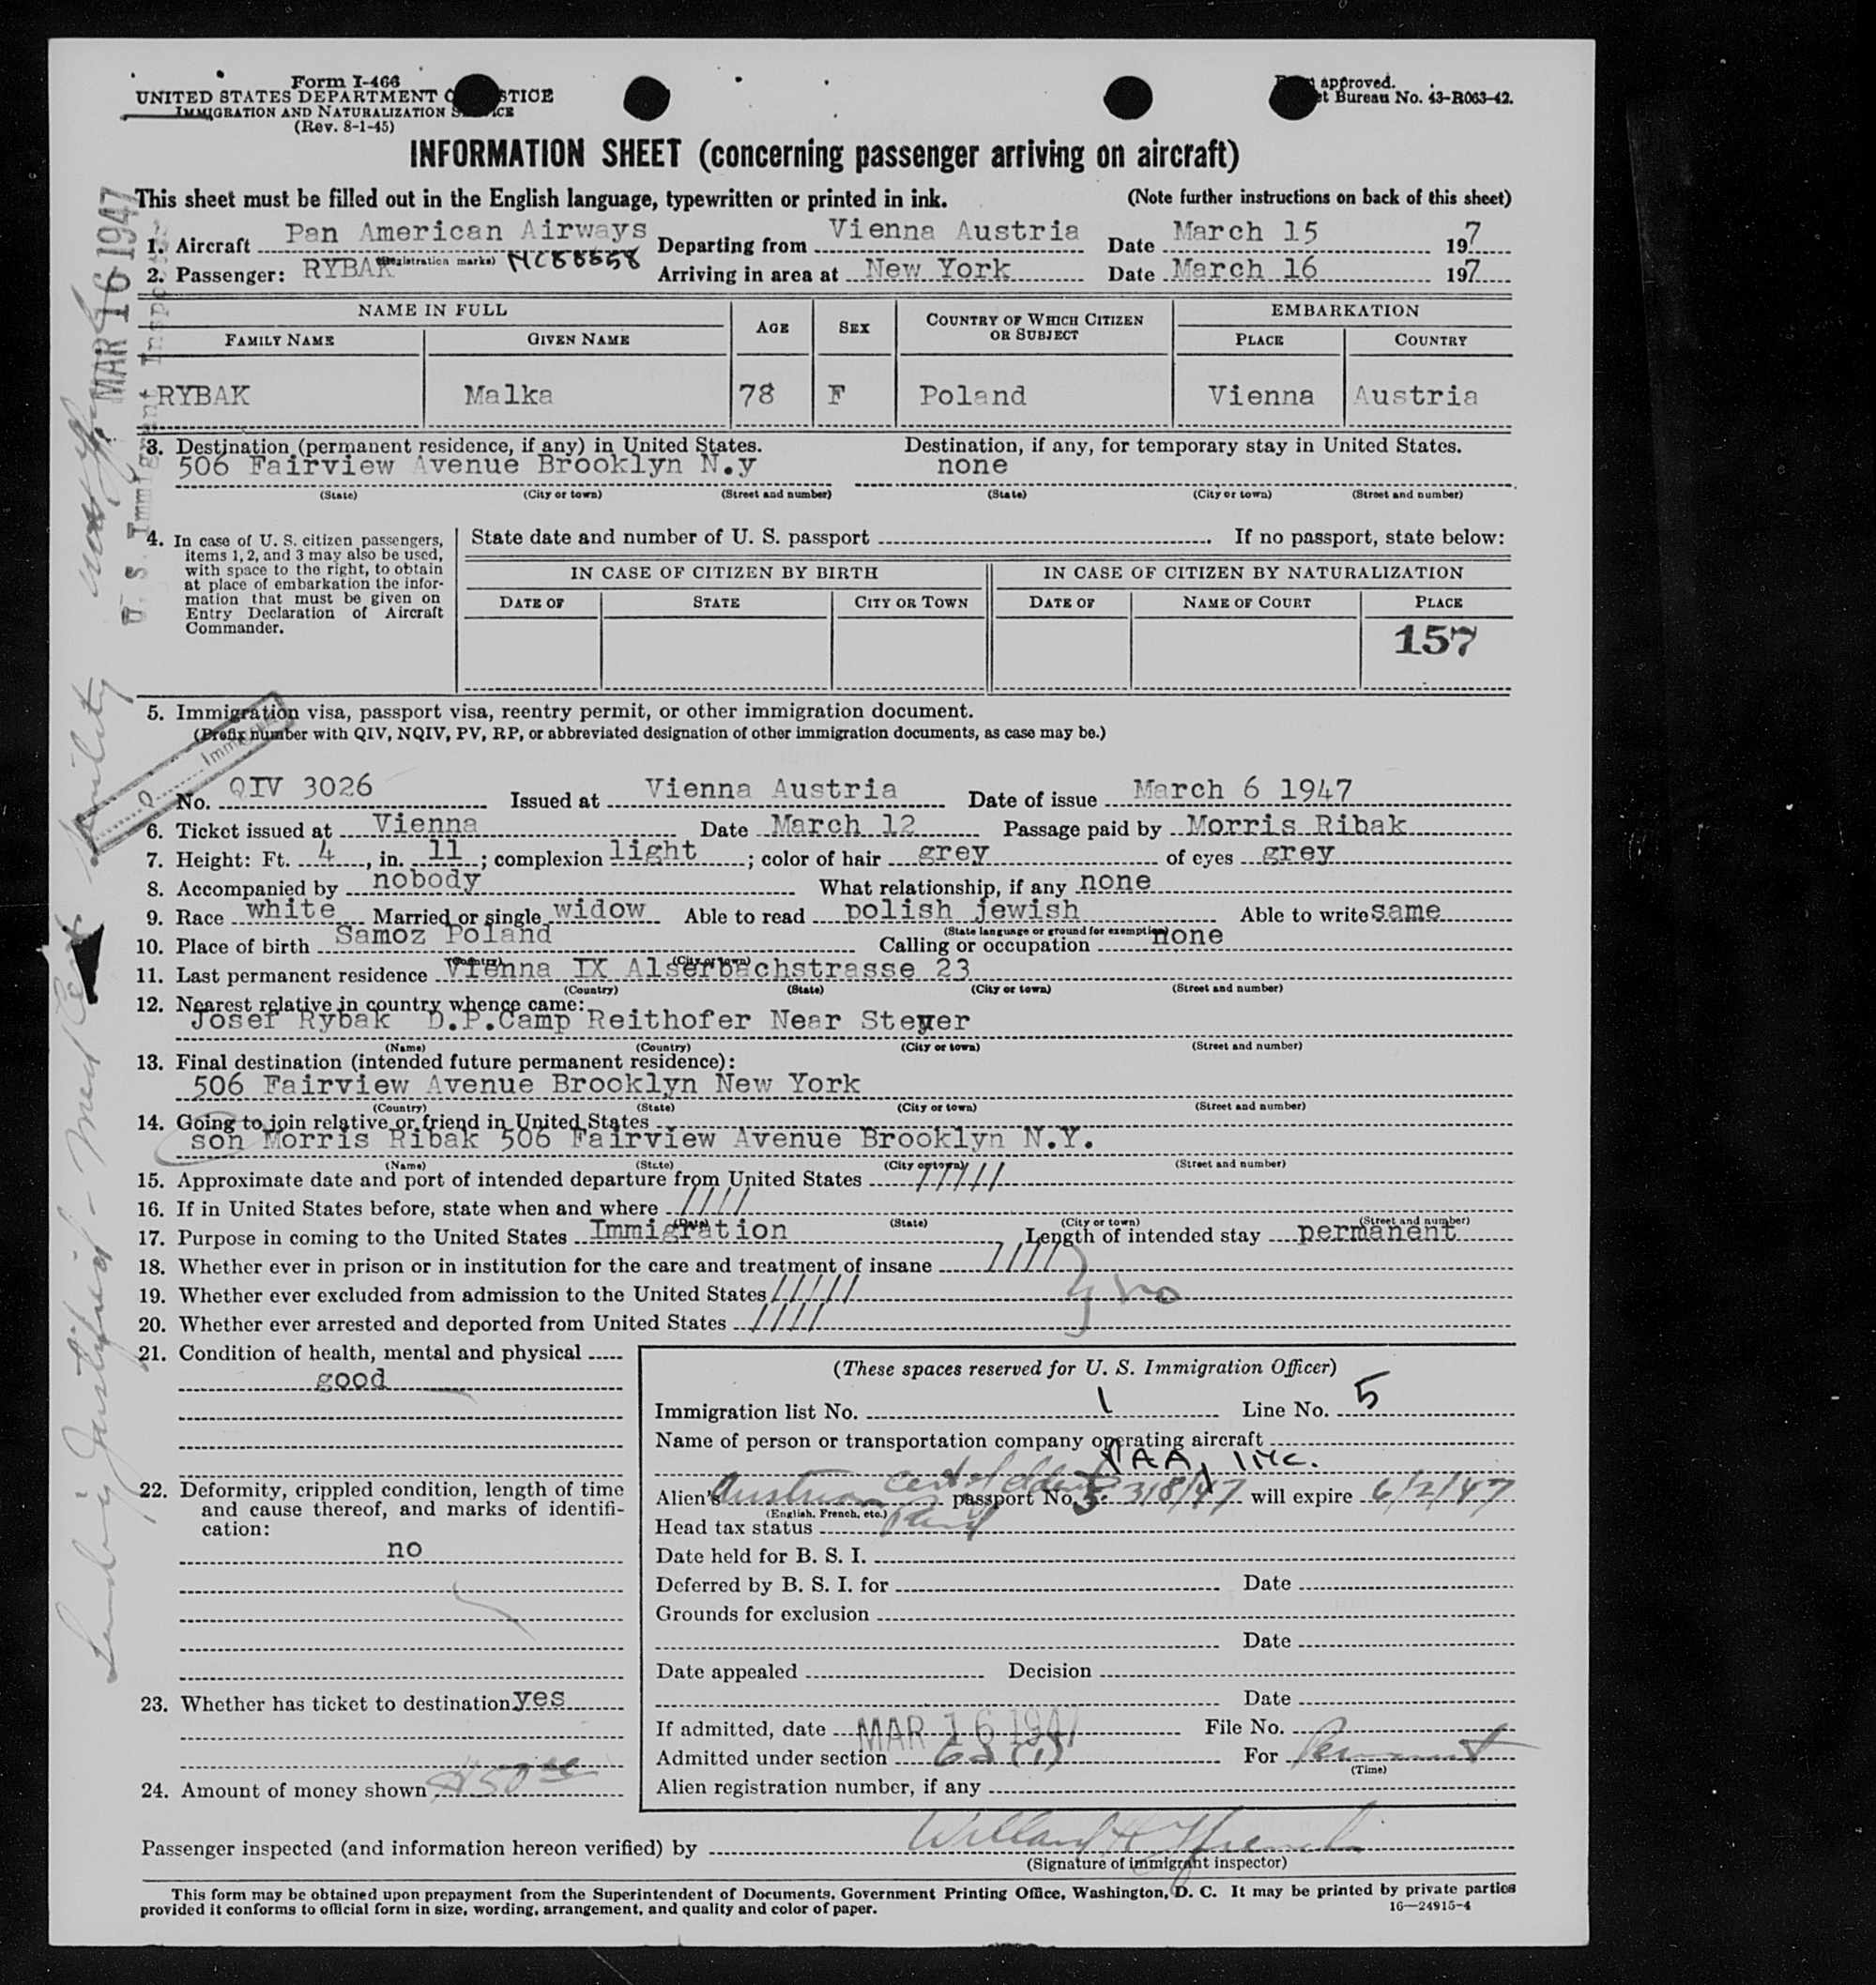 Form I-466
UNITED STATES DEPARTMENT O STICE
IMMIGRATION AND NATURALIZATION S ICE
(Rev. 8-1-45)
approved.
t Bureau No. 43-R063-42.
INFORMATION SHEET (concerning passenger arriving on aircraft)
This sheet must be filled out in the English language, typewritten or printed in ink. (Note further instructions on back of this sheet)
MAR 16 1947
U. S. Immigrant Inspector
1. Aircraft Pan American Airways Departing from Vienna Austria Date March 15 197
(Registration marks)
2. Passenger: RYBAK NC88858 Arriving in area at New York Date March 16 197
NAME IN FULL AGE SEX COUNTRY OF WHICH CITIZEN OR SUBJECT EMBARKATION
FAMILY NAME GIVEN NAME PLACE COUNTRY
RYBAK Malka 78 F Poland Vienna Austria
3. Destination (permanent residence, if any) in United States. Destination, if any, for temporary stay in United States.
506 Fairview Avenue Brooklyn N.y none
(State) (City or town) (Street and number) (State) (City or town) (Street and number)
4. In case of U. S. citizen passengers, items 1, 2, and 3 may also be used, with space to the right, to obtain at place of embarkation the information that must be given on Entry Declaration of Aircraft Commander.
State date and number of U. S. passport . If no passport, state below:
IN CASE OF CITIZEN BY BIRTH IN CASE OF CITIZEN BY NATURALIZATION
DATE OF STATE CITY OR TOWN DATE OF NAME OF COURT PLACE
157
5. Immigration visa, passport visa, reentry permit, or other immigration document.
(Prefix number with QIV, NQIV, PV, RP, or abbreviated designation of other immigration documents, as case may be.)
No. QIV 3026 Issued at Vienna Austria Date of issue March 6 1947
6. Ticket issued at Vienna Date March 12 Passage paid by Morris Ribak
7. Height: Ft. 4, in. 11; complexion light; color of hair grey of eyes grey
8. Accompanied by nobody What relationship, if any none
9. Race white Married or single widow Able to read polish jewish Able to write same
(State language or ground for exemption)
10. Place of birth Samoz Poland Calling or occupation none
(Country) (City or town)
11. Last permanent residence Vienna IX Alserbachstrasse 23
(Country) (State) (City or town) (Street and number)
12. Nearest relative in country whence came:
Josef Rybak D.P.Camp Reithofer Near Steyer
(Name) (Country) (City or town) (Street and number)
13. Final destination (intended future permanent residence):
506 Fairview Avenue Brooklyn New York
(Country) (State) (City or town) (Street and number)
14. Going to join relative or friend in United States
son Morris Ribak 506 Fairview Avenue Brooklyn N.Y.
(Name) (State) (City or town) (Street and number)
15. Approximate date and port of intended departure from United States /////
16. If in United States before, state when and where ////
(Date) (State) (City or town) (Street and number)
17. Purpose in coming to the United States Immigration Length of intended stay permanent
18. Whether ever in prison or in institution for the care and treatment of insane ////
19. Whether ever excluded from admission to the United States ///// no
20. Whether ever arrested and deported from United States ////
21. Condition of health, mental and physical
good
22. Deformity, crippled condition, length of time and cause thereof, and marks of identification:
no
23. Whether has ticket to destination yes
24. Amount of money shown $150.00
(These spaces reserved for U. S. Immigration Officer)
Immigration list No. 1 Line No. 5
Name of person or transportation company operating aircraft
PAA, INC.
Alien's Austrian cert of ident passport No. 318/47 will expire 6/2/47
(English, French, etc.)
Head tax status Paid
Date held for B. S. I.
Deferred by B. S. I. for Date
Grounds for exclusion
Date
Date appealed Decision
Date
If admitted, date MAR 16 1947 File No.
Admitted under section 6a (1) For Permanent
(Time)
Alien registration number, if any
Passenger inspected (and information hereon verified) by
(Signature of immigrant inspector)
This form may be obtained upon prepayment from the Superintendent of Documents, Government Printing Office, Washington, D. C. It may be printed by private parties
provided it conforms to official form in size, wording, arrangement, and quality and color of paper. 16—24915-4